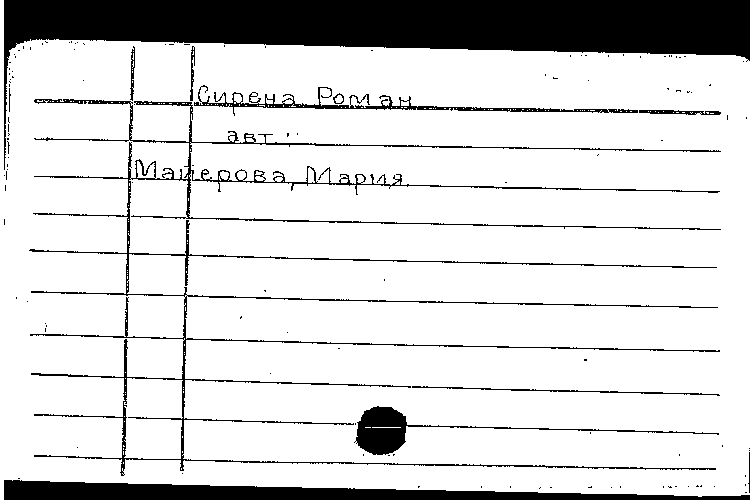 Сирена Роман
авт.:
Майерова, Мария